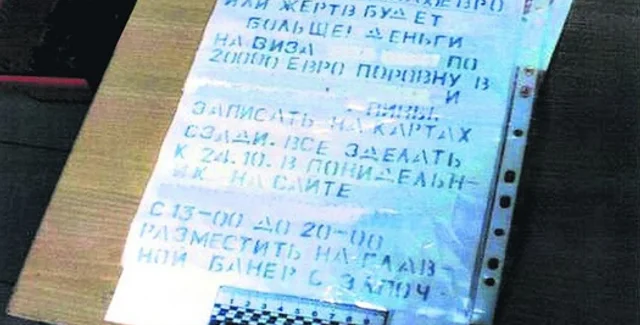 ЕВРО
ИЛИ ЖЕРТВ БУДЕТ
БОЛЬЩЕ! ДЕНЬГИ
НА ВИЗА ПО
20000 ЕВРО ПОРОВНУ В
И
ПИНЫ.
ЗАПИСАТЬ НА КАРТАХ
СЗАДИ. ВСЕ ЗДЕЛАТЬ
К 24.10. В ПОНИДЕЛЬН-
ИК НА САЙТЕ
С 13-00 ДО 20-00
РАЗМЕСТИТЬ НА ГЛАВ-
НОЙ БАНЕР С ЗКЛЮЧ-
1 2 3 4 5 6 7 8 9